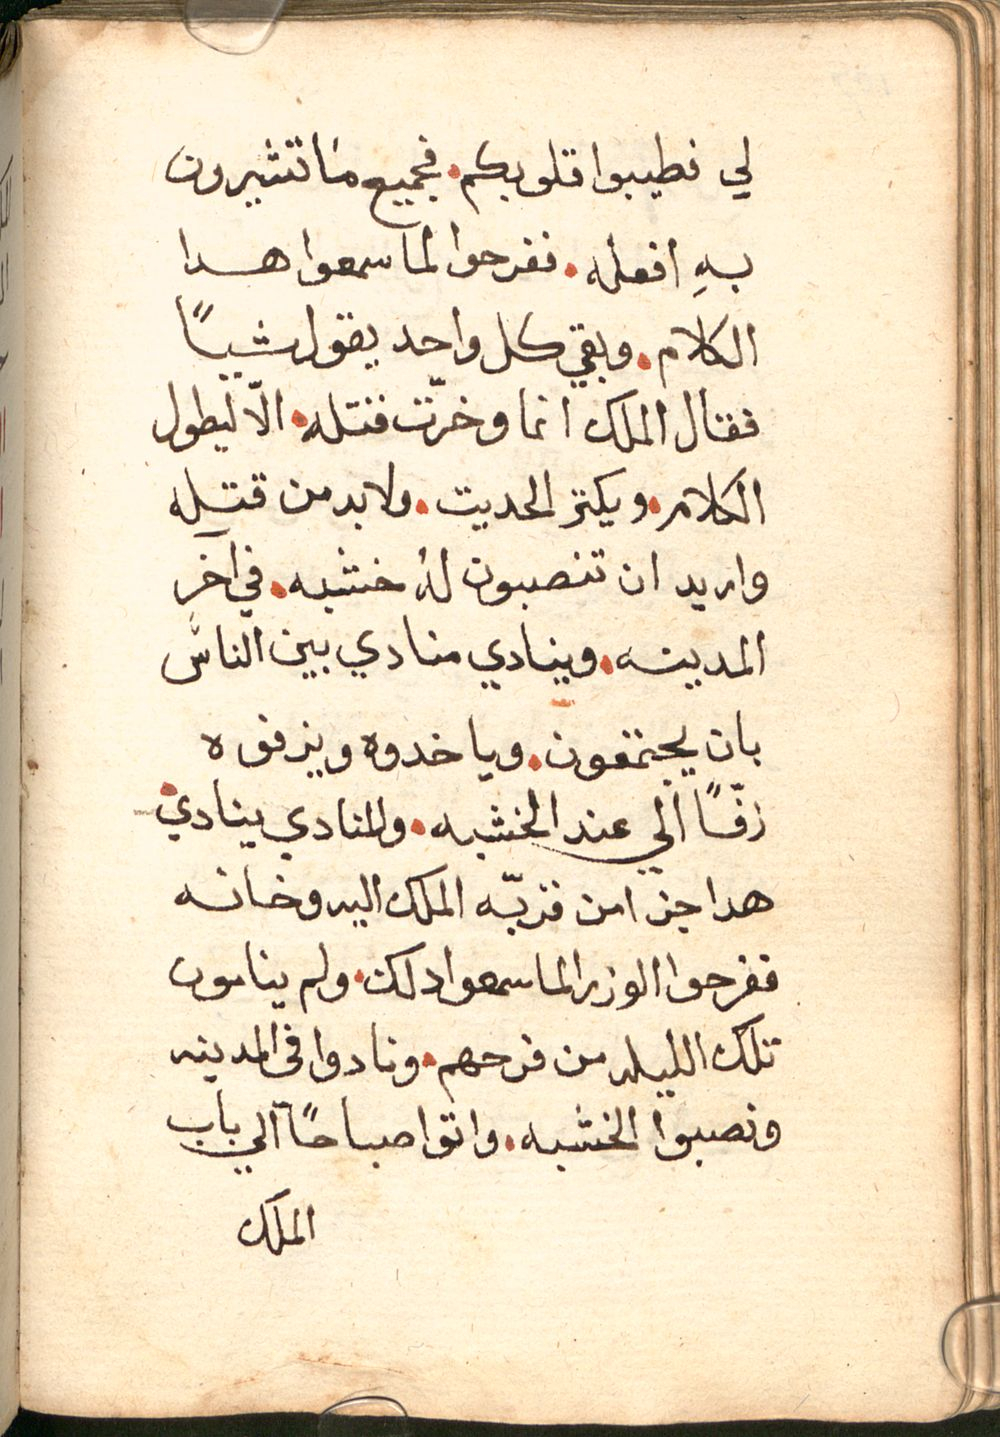 لي فطيبوا قلوبكم. فجميع ما تشيرون
بهِ افعله. ففرحوا لما سمعوا هدا
الكلام. وبقي كل واحد يقول شيـاً
فقال الملك انما وخرّت قتله. الّا ليطول
الكلام. ويكتر الحديت. ولا بد من قتله
واريد ان تنصبون لهُ خشبه. في آخر
المدينه. وينادي منادي بين الناس
بان يجتمعون. وياخدوه ويزفوه
زفّاً الي عند الخشبه. والمنادي ينادي
هدا جزا من قرّبه الملك اليه وخانه
ففرحوا الوزرا لما سمعوا دلك. ولم يناموں
تلك الليله من فرحهم. ونادوا في المدينه
ونصبوا الخشبه. واتوا صباحاً الي باب
الملك